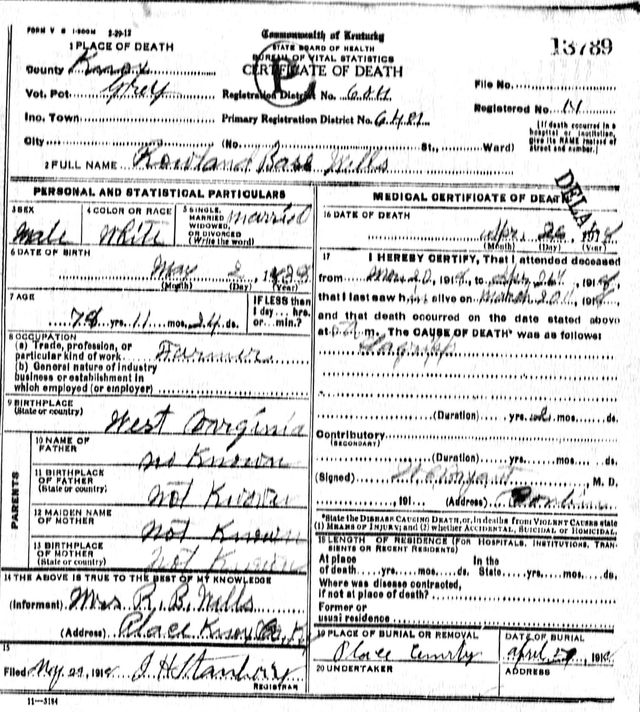 FORM V S 1-500M 2-29-12
Commonwealth of Kentucky
STATE BOARD OF HEALTH
BUREAU OF VITAL STATISTICS
CERTIFICATE OF DEATH
13789
1 PLACE OF DEATH
County Knox
Vot. Pct. Grey
Registration District No.
File No.
Inc. Town
Primary Registration District No.
Registered No. 14
City (No. St., Ward)
[If death occurred in a hospital or institution, give its NAME instead of street and number.]
2 FULL NAME Rowland Mills
DELAY
PERSONAL AND STATISTICAL PARTICULARS
3 SEX
Male
4 COLOR OR RACE
White
5 SINGLE, MARRIED, WIDOWED, OR DIVORCED (Write the word)
Married
6 DATE OF BIRTH
May 2
(Month) (Day) (Year)
7 AGE
78 yrs. 11 mos. 24 ds.
IF LESS than 1 day... hrs. or... min.?
8 OCCUPATION
(a) Trade, profession, or particular kind of work Farmer
(b) General nature of industry business or establishment in which employed (or employer)
9 BIRTHPLACE
(State or country)
West Virginia
PARENTS
10 NAME OF FATHER
no Known
11 BIRTHPLACE OF FATHER
(State or country)
Not Known
12 MAIDEN NAME OF MOTHER
Not Known
13 BIRTHPLACE OF MOTHER
(State or country)
Not Known
14 THE ABOVE IS TRUE TO THE BEST OF MY KNOWLEDGE
(Informant) Mrs R. B. Mills
(Address) Place Knox Co, Ky
15
Filed 191 J H Stanberry
REGISTRAR
11—3184
MEDICAL CERTIFICATE OF DEATH
16 DATE OF DEATH
Apr. 26 191
(Month) (Day) (Year)
17 I HEREBY CERTIFY, That I attended deceased
from Mar 20 191 , to Apr 26 191
that I last saw h alive on March 20 191
and that death occurred on the date stated above
at m. The CAUSE OF DEATH* was as follows:
Lagripp
(Duration) yrs. mos. ds.
Contributory
(SECONDARY)
(Duration) yrs. mos. ds.
(Signed) M. D.
191 (Address)
*State the DISEASE CAUSING DEATH, or, in deaths from VIOLENT CAUSES state
(1) MEANS OF INJURY; and (2) whether ACCIDENTAL, SUICIDAL or HOMICIDAL.
18 LENGTH OF RESIDENCE (FOR HOSPITALS, INSTITUTIONS, TRANSIENTS OR RECENT RESIDENTS)
At place of death yrs. mos. ds. In the State yrs. mos. ds.
Where was disease contracted, if not at place of death?
Former or usual residence
19 PLACE OF BURIAL OR REMOVAL
Place
DATE OF BURIAL
April 27 191
20 UNDERTAKER
ADDRESS